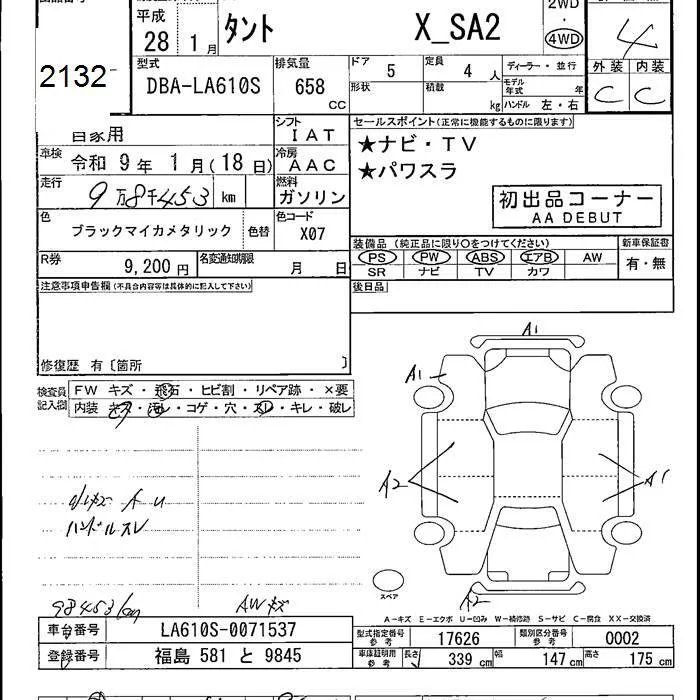 平成 28 1月 タント X_SA2 2WD・4WD 4
2132
型式 DBA-LA610S 排気量 658 CC
ドア 5 定員 4 人 ディーラー・並行
形状 積載 kg モデル年式 年 ハンドル 左・右
外装 内装
C C
自家用 シフト IAT
車検 令和 9年 1月(18日) 冷房 AAC
走行 9万8千453 km 燃料 ガソリン
色 ブラックマイカメタリック 色替 色コード X07
R券 9,200円 名変通知期限 月 日
セールスポイント(正常に機能するものに限ります)
★ナビ・TV
★パワスラ
初出品コーナー
AA DEBUT
装備品 (純正品に限り○をつけてください) 新車保証書
PS PW ABS エアB AW 有・無
SR ナビ TV カワ
後日品
注意事項申告欄(不具合内容等は具体的に記入して下さい)
修復歴 有〔箇所 〕
検査員記入欄 FW キズ・飛石・ヒビ割・リペア跡・×要
内装 キズ・汚レ・コゲ・穴・スレ・キレ・破レ
A1
A1
A2
A1
A2
小キズ A U
ハンドルスレ
98453km AWキズ
スペア
A-キズ E-エクボ U-凹み W-補修跡 S-サビ C-腐食 XX-交換済
車台番号 LA610S-0071537
登録番号 福島 581 と 9845
型式指定番号 参考 17626 類別区分番号 参考 0002
車庫証明用 参考 長さ 339 cm 幅 147 cm 高さ 175 cm